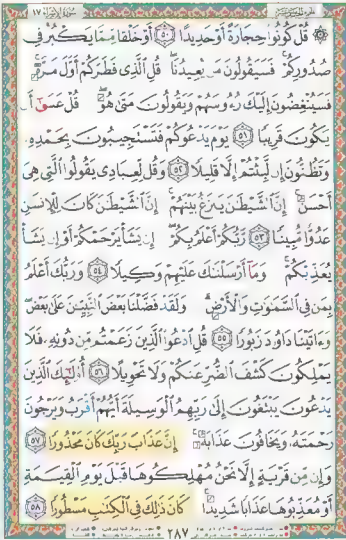 سُورَةُ الإِسْرَاءِ ١٧
۞ قُلْ كُونُوا۟ حِجَارَةً أَوْ حَدِيدًا ﴿٥٠﴾ أَوْ خَلْقًا مِّمَّا يَكْبُرُ فِى
صُدُورِكُمْ ۚ فَسَيَقُولُونَ مَن يُعِيدُنَا ۖ قُلِ ٱلَّذِى فَطَرَكُمْ أَوَّلَ مَرَّةٍ ۚ
فَسَيُنْغِضُونَ إِلَيْكَ رُءُوسَهُمْ وَيَقُولُونَ مَتَىٰ هُوَ ۖ قُلْ عَسَىٰٓ أَن
يَكُونَ قَرِيبًا ﴿٥١﴾ يَوْمَ يَدْعُوكُمْ فَتَسْتَجِيبُونَ بِحَمْدِهِۦ
وَتَظُنُّونَ إِن لَّبِثْتُمْ إِلَّا قَلِيلًا ﴿٥٢﴾ وَقُل لِّعِبَادِى يَقُولُوا۟ ٱلَّتِى هِىَ
أَحْسَنُ ۚ إِنَّ ٱلشَّيْطَٰنَ يَنزَغُ بَيْنَهُمْ ۚ إِنَّ ٱلشَّيْطَٰنَ كَانَ لِلْإِنسَٰنِ
عَدُوًّا مُّبِينًا ﴿٥٣﴾ رَّبُّكُمْ أَعْلَمُ بِكُمْ ۖ إِن يَشَأْ يَرْحَمْكُمْ أَوْ إِن يَشَأْ
يُعَذِّبْكُمْ ۚ وَمَآ أَرْسَلْنَٰكَ عَلَيْهِمْ وَكِيلًا ﴿٥٤﴾ وَرَبُّكَ أَعْلَمُ
بِمَن فِى ٱلسَّمَٰوَٰتِ وَٱلْأَرْضِ ۗ وَلَقَدْ فَضَّلْنَا بَعْضَ ٱلنَّبِيِّۦنَ عَلَىٰ بَعْضٍ ۖ
وَءَاتَيْنَا دَاوُۥدَ زَبُورًا ﴿٥٥﴾ قُلِ ٱدْعُوا۟ ٱلَّذِينَ زَعَمْتُم مِّن دُونِهِۦ فَلَا
يَمْلِكُونَ كَشْفَ ٱلضُّرِّ عَنكُمْ وَلَا تَحْوِيلًا ﴿٥٦﴾ أُو۟لَٰٓئِكَ ٱلَّذِينَ
يَدْعُونَ يَبْتَغُونَ إِلَىٰ رَبِّهِمُ ٱلْوَسِيلَةَ أَيُّهُمْ أَقْرَبُ وَيَرْجُونَ
رَحْمَتَهُۥ وَيَخَافُونَ عَذَابَهُۥٓ ۚ إِنَّ عَذَابَ رَبِّكَ كَانَ مَحْذُورًا ﴿٥٧﴾
وَإِن مِّن قَرْيَةٍ إِلَّا نَحْنُ مُهْلِكُوهَا قَبْلَ يَوْمِ ٱلْقِيَٰمَةِ
أَوْ مُعَذِّبُوهَا عَذَابًا شَدِيدًا ۚ كَانَ ذَٰلِكَ فِى ٱلْكِتَٰبِ مَسْطُورًا ﴿٥٨﴾
٢٨٧